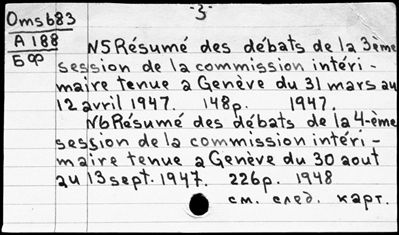 -3-
Oms683
A 188
БФ
N5 Résumé des débats de la 3ème
session de la commission intéri-
maire tenue a Genève du 31 mars au
12 avril 1947. 148p. 1947.
N6 Résumé des débats de la 4-ème
session de la commission intéri-
maire tenue a Genève du 30 aout
au 13 sept. 1947. 226p. 1948
см. след. карт.